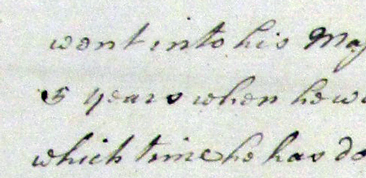 went into his Maj
5 years when he wa
which time he has do